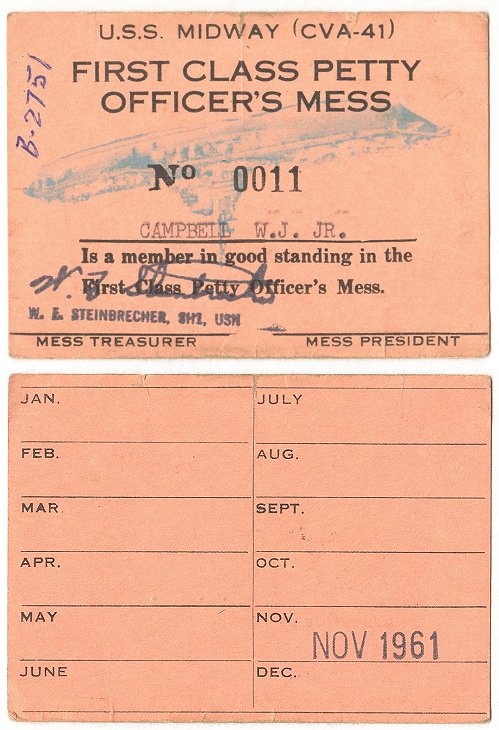 U.S.S. MIDWAY (CVA-41)
FIRST CLASS PETTY
OFFICER'S MESS
B-2751
No 0011
CAMPBELL W.J. JR.
Is a member in good standing in the
First Class Petty Officer's Mess.
W. E. Steinbrecher
W. E. STEINBRECHER, SH1, USN
MESS TREASURER MESS PRESIDENT
JAN. JULY
FEB. AUG.
MAR. SEPT.
APR. OCT.
MAY NOV.
NOV 1961
JUNE DEC.